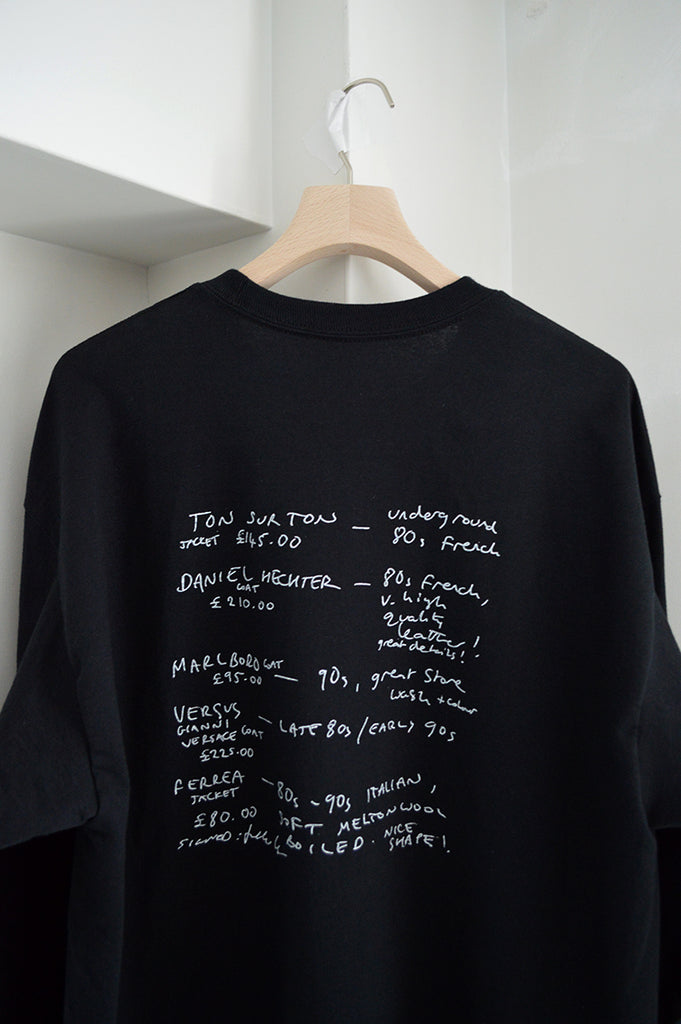 TON SURTON — underground
JACKET £145.00 80s French
DANIEL HECHTER — 80s French,
COAT v. high
£210.00 quality
leather!
great details!!
MARLBORO COAT
£95.00 — 90s, great Stone
wash + colour
VERSUS
GIANNI — LATE 80s / EARLY 90s
VERSACE COAT
£225.00
FERREA — 80s - 90s ITALIAN,
JACKET
£80.00 SOFT MELTON WOOL
SIGNED: BOILED. NICE
SHAPE!